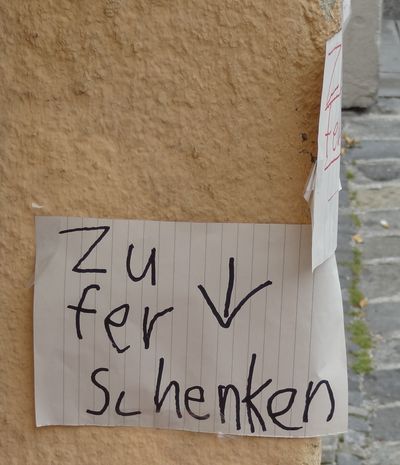 Zu ↓
fer
schenken